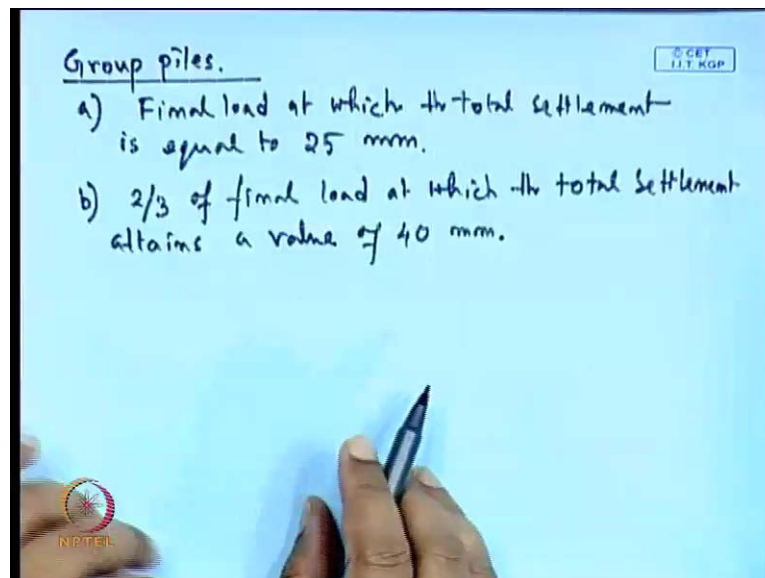 Group piles.
© CET
I.I.T. KGP
a) Final load at which the total settlement
is equal to 25 mm.
b) 2/3 of final load at which the total settlement
attains a value of 40 mm.
NPTEL